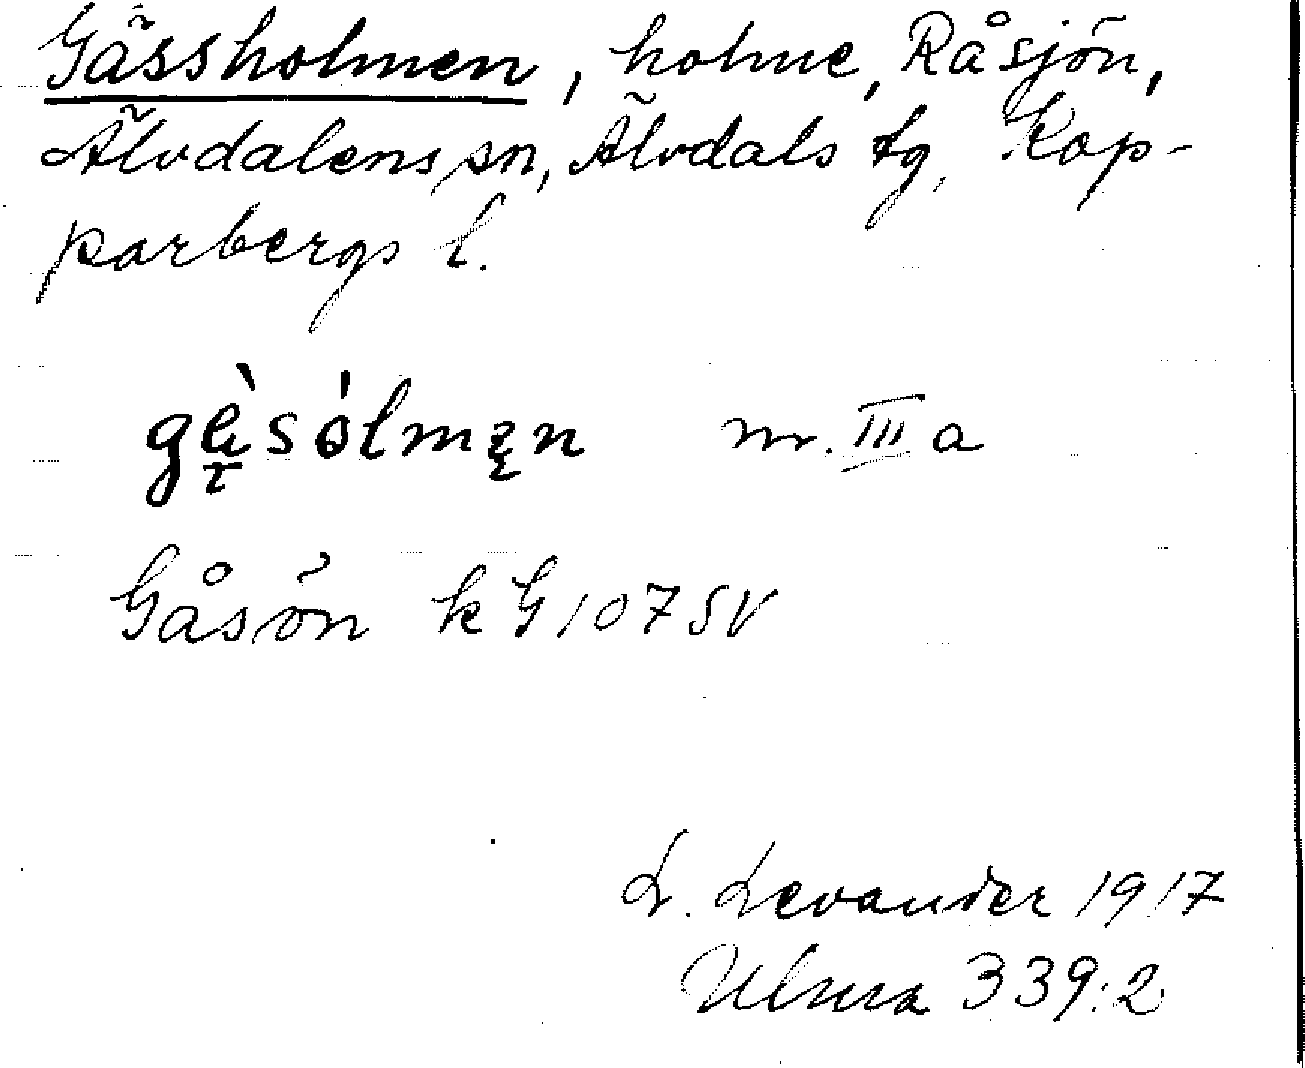 Gässholmen, holme, Råsjön,
Älvdalens sn, Älvdals tg, Kop-
parbergs l.
nr. III a
Gåsön k G 107 SV
L. Levander 1917
Ulma 339:2